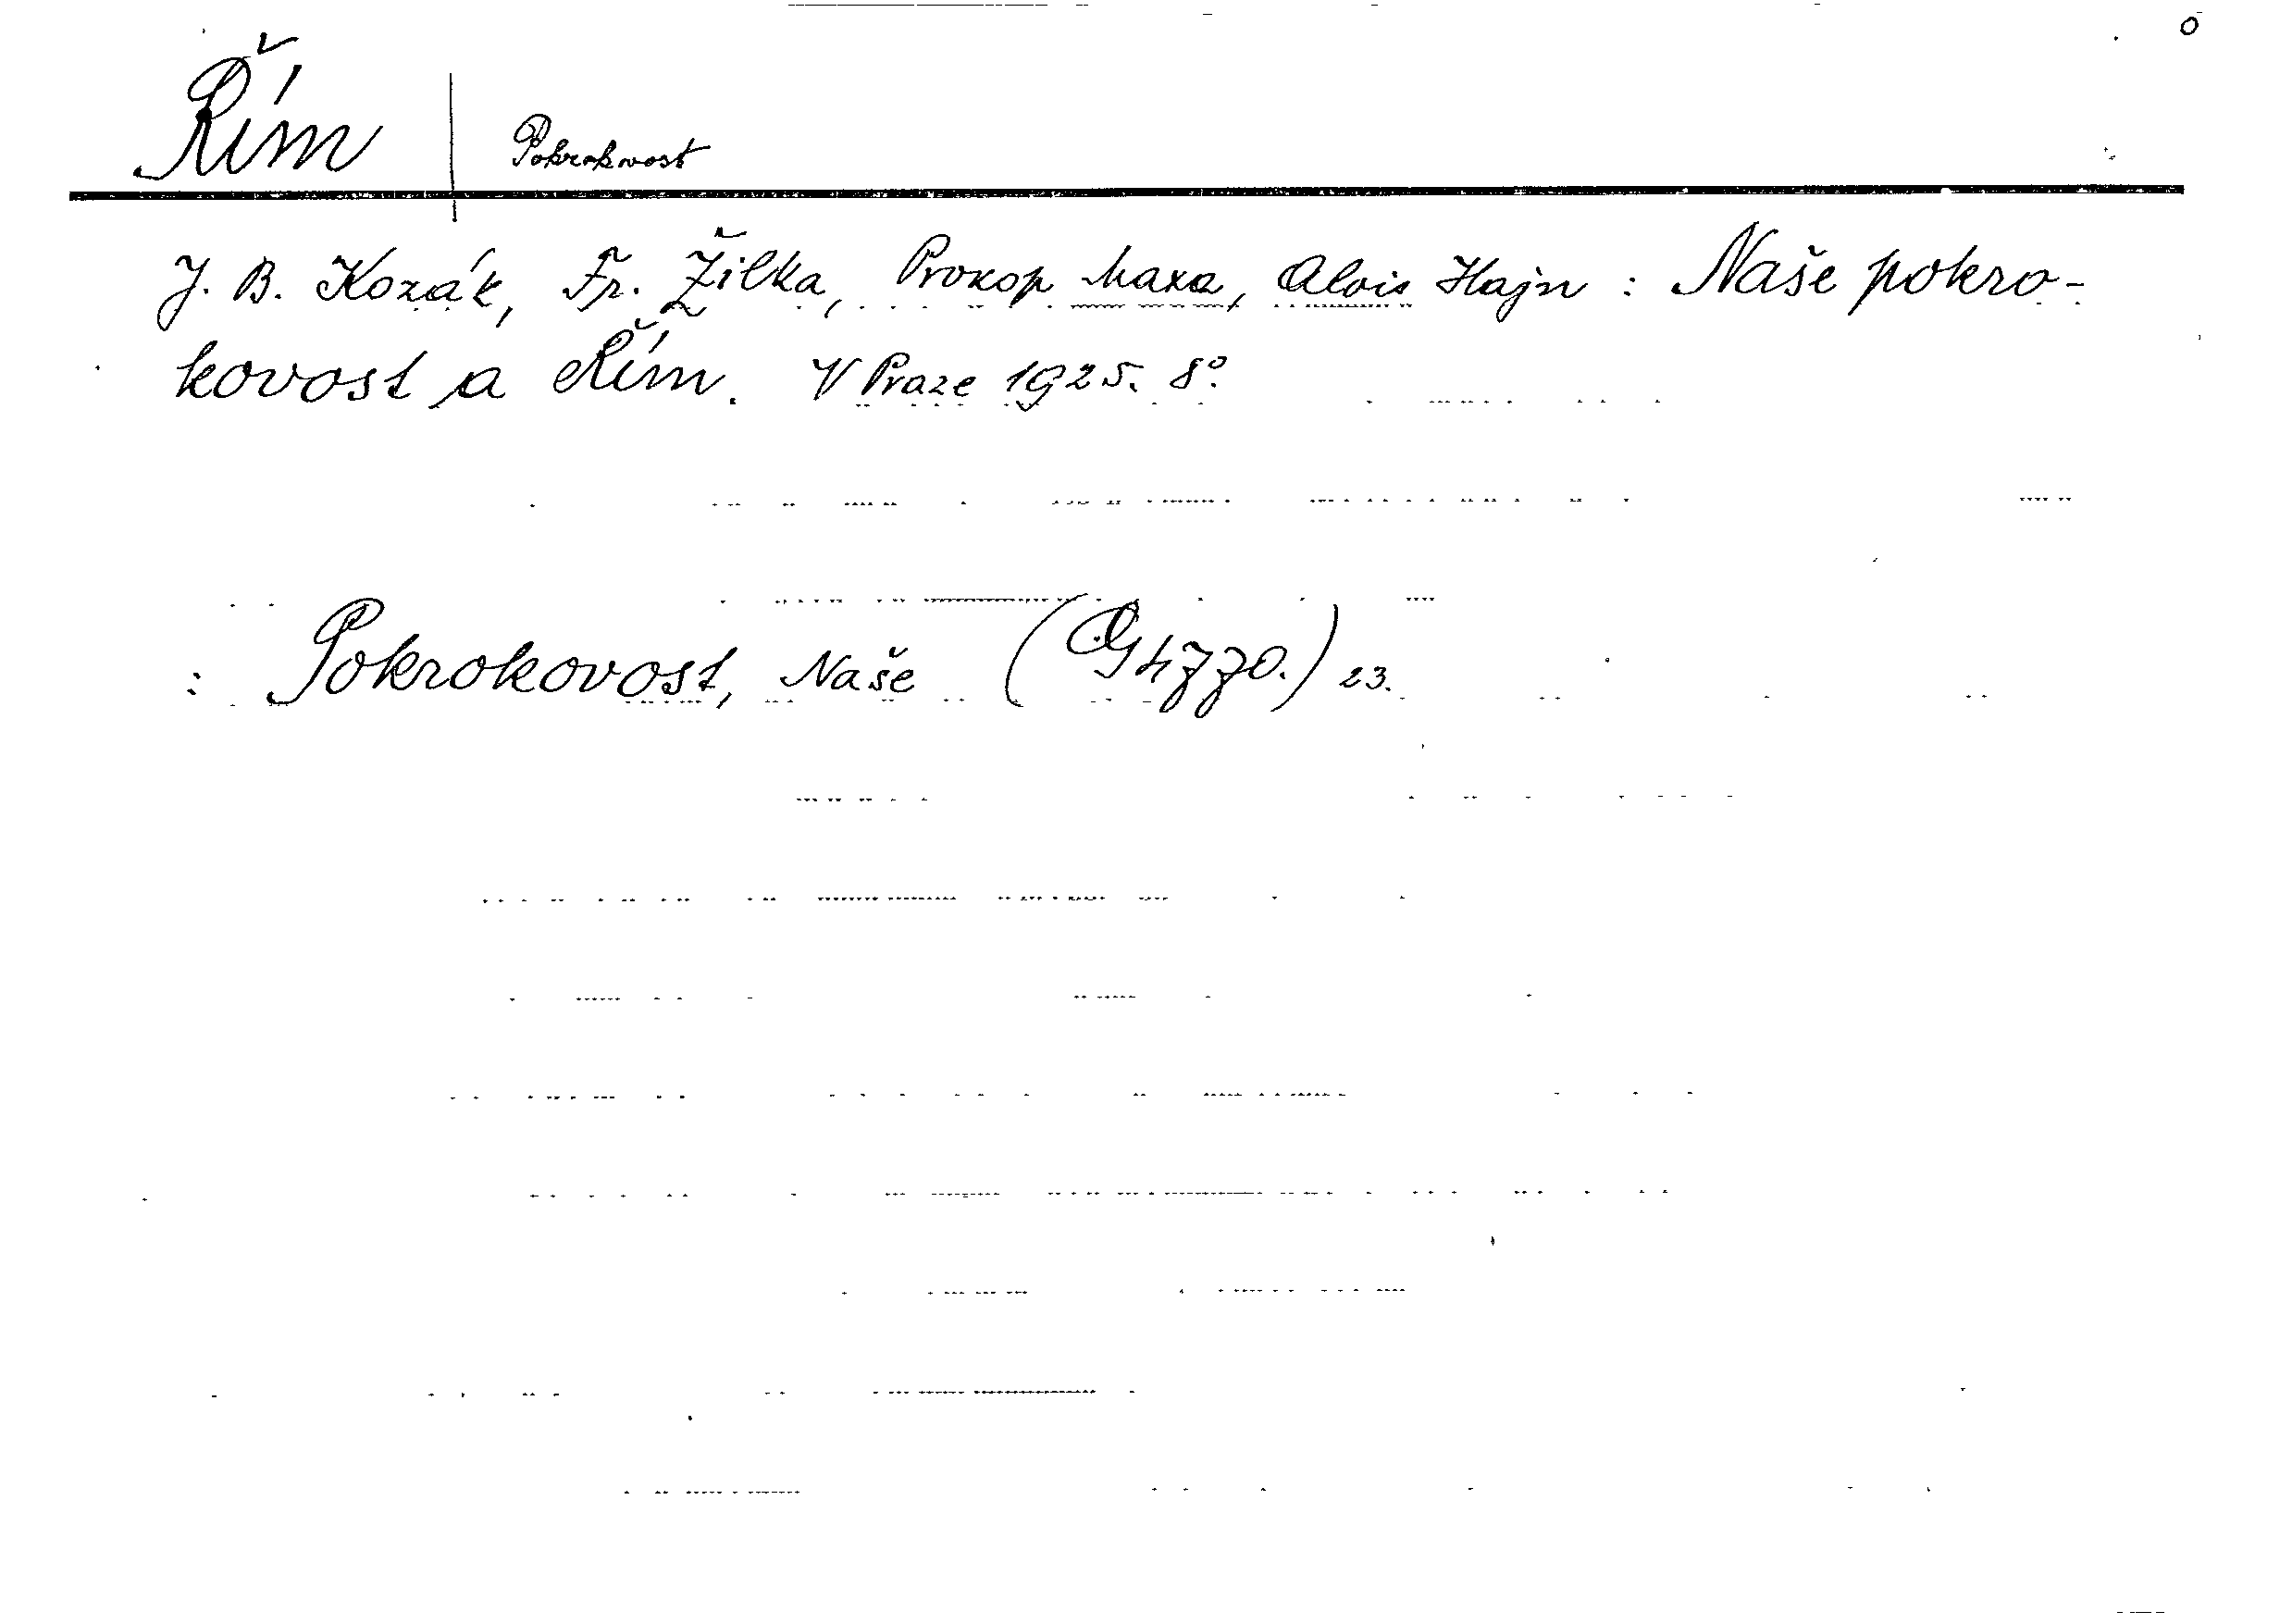 Řím | Pokrokovost
J. B. Kozák, Fr. Žilka, Prokop Maxa, Alois Hajn : Naše pokro-
kovost a Řím. V Praze 1925. 8°.
: Pokrokovost, Naše ( 4770.) 23.